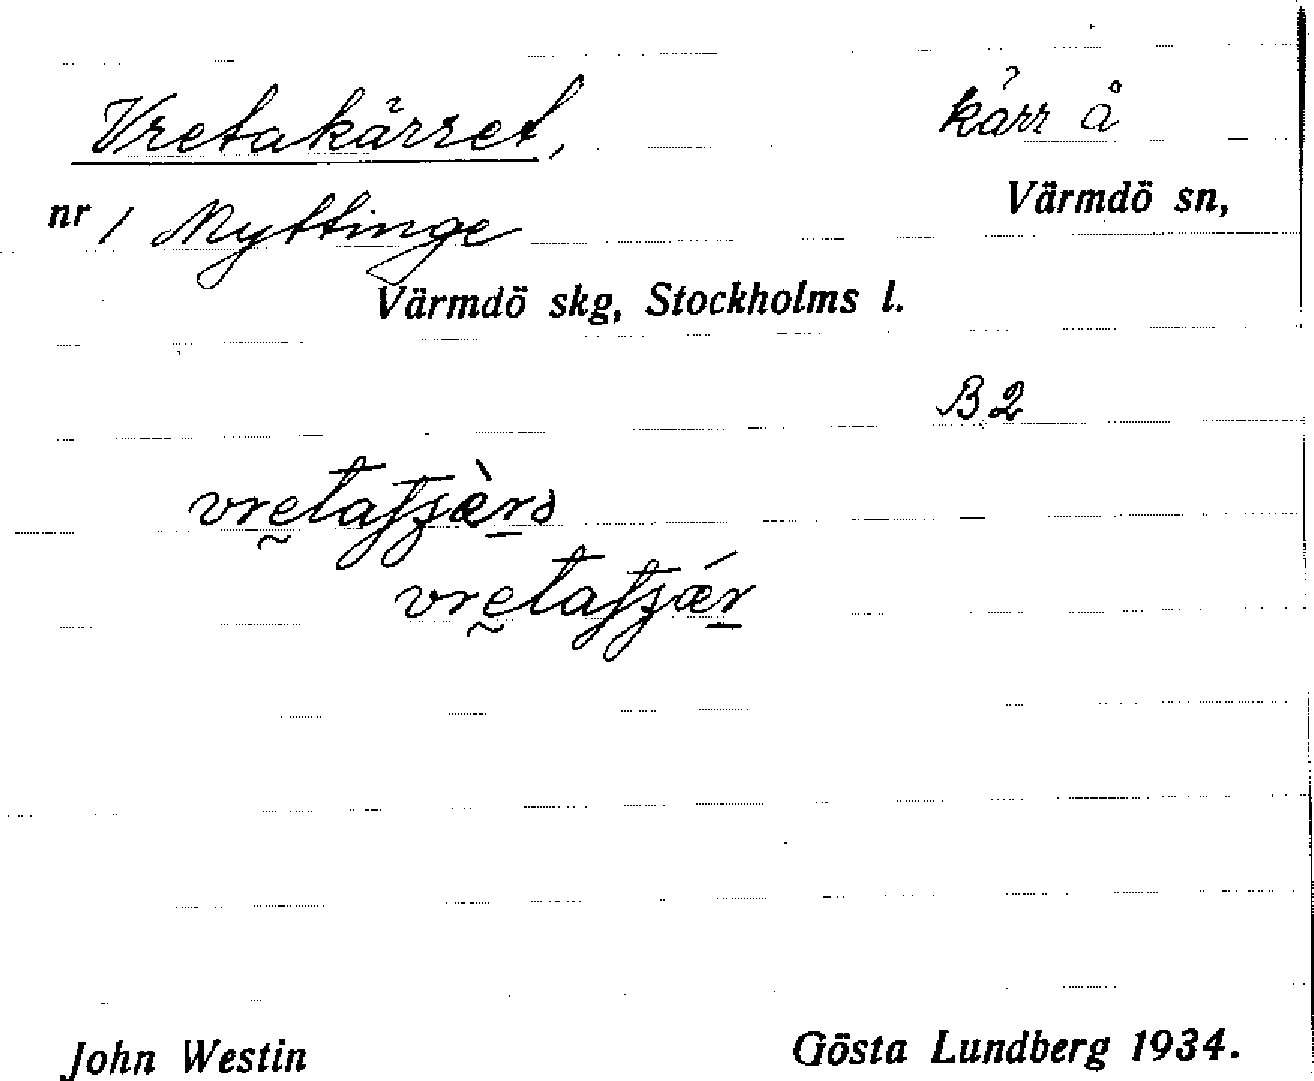 Vretakärret, kärr å
nr 1 Myttinge Värmdö sn,
Värmdö skg, Stockholms l.
B2
John Westin Gösta Lundberg 1934.